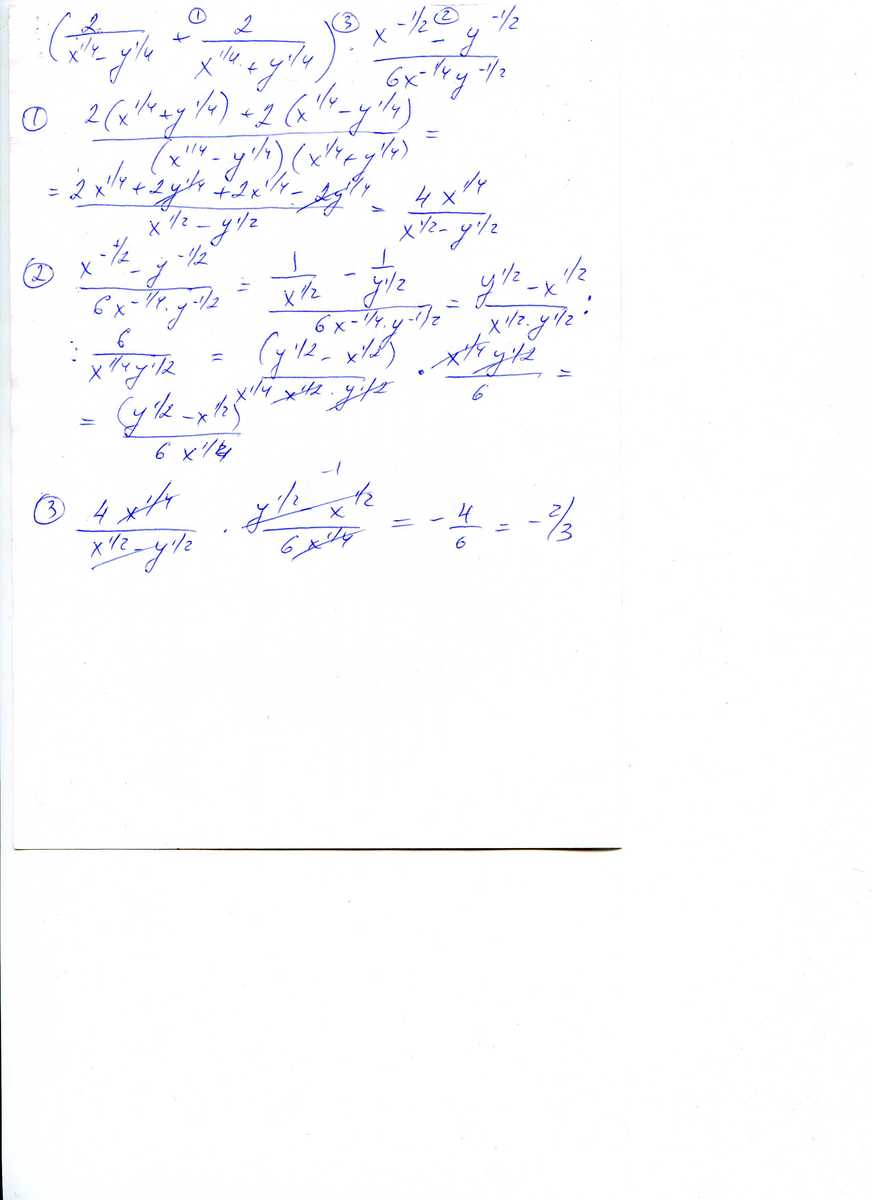 (2/(x^1/4 - y^1/4) +① 2/(x^1/4 + y^1/4)) ③· (x^-1/2 -② y^-1/2)/(6x^-1/4 y^-1/2)
① (2(x^1/4 + y^1/4) + 2(x^1/4 - y^1/4))/((x^1/4 - y^1/4)(x^1/4 + y^1/4)) =
= (2x^1/4 + 2y^1/4 + 2x^1/4 - 2y^1/4)/(x^1/2 - y^1/2) = 4x^1/4/(x^1/2 - y^1/2)
② (x^-1/2 - y^-1/2)/(6x^-1/4 · y^-1/2) = (1/x^1/2 - 1/y^1/2)/(6x^-1/4 · y^-1/2) = (y^1/2 - x^1/2)/(x^1/2 · y^1/2) :
: 6/(x^1/4 y^1/2) = (y^1/2 - x^1/2)/(x^1/4 x^1/2 · y^1/2) · (x^1/4 y^1/2)/6 =
= (y^1/2 - x^1/2)/(6 x^1/4)
③ 4x^1/4/(x^1/2 - y^1/2) · (y^1/2 - x^1/2)^-1/(6x^1/4) = -4/6 = -2/3